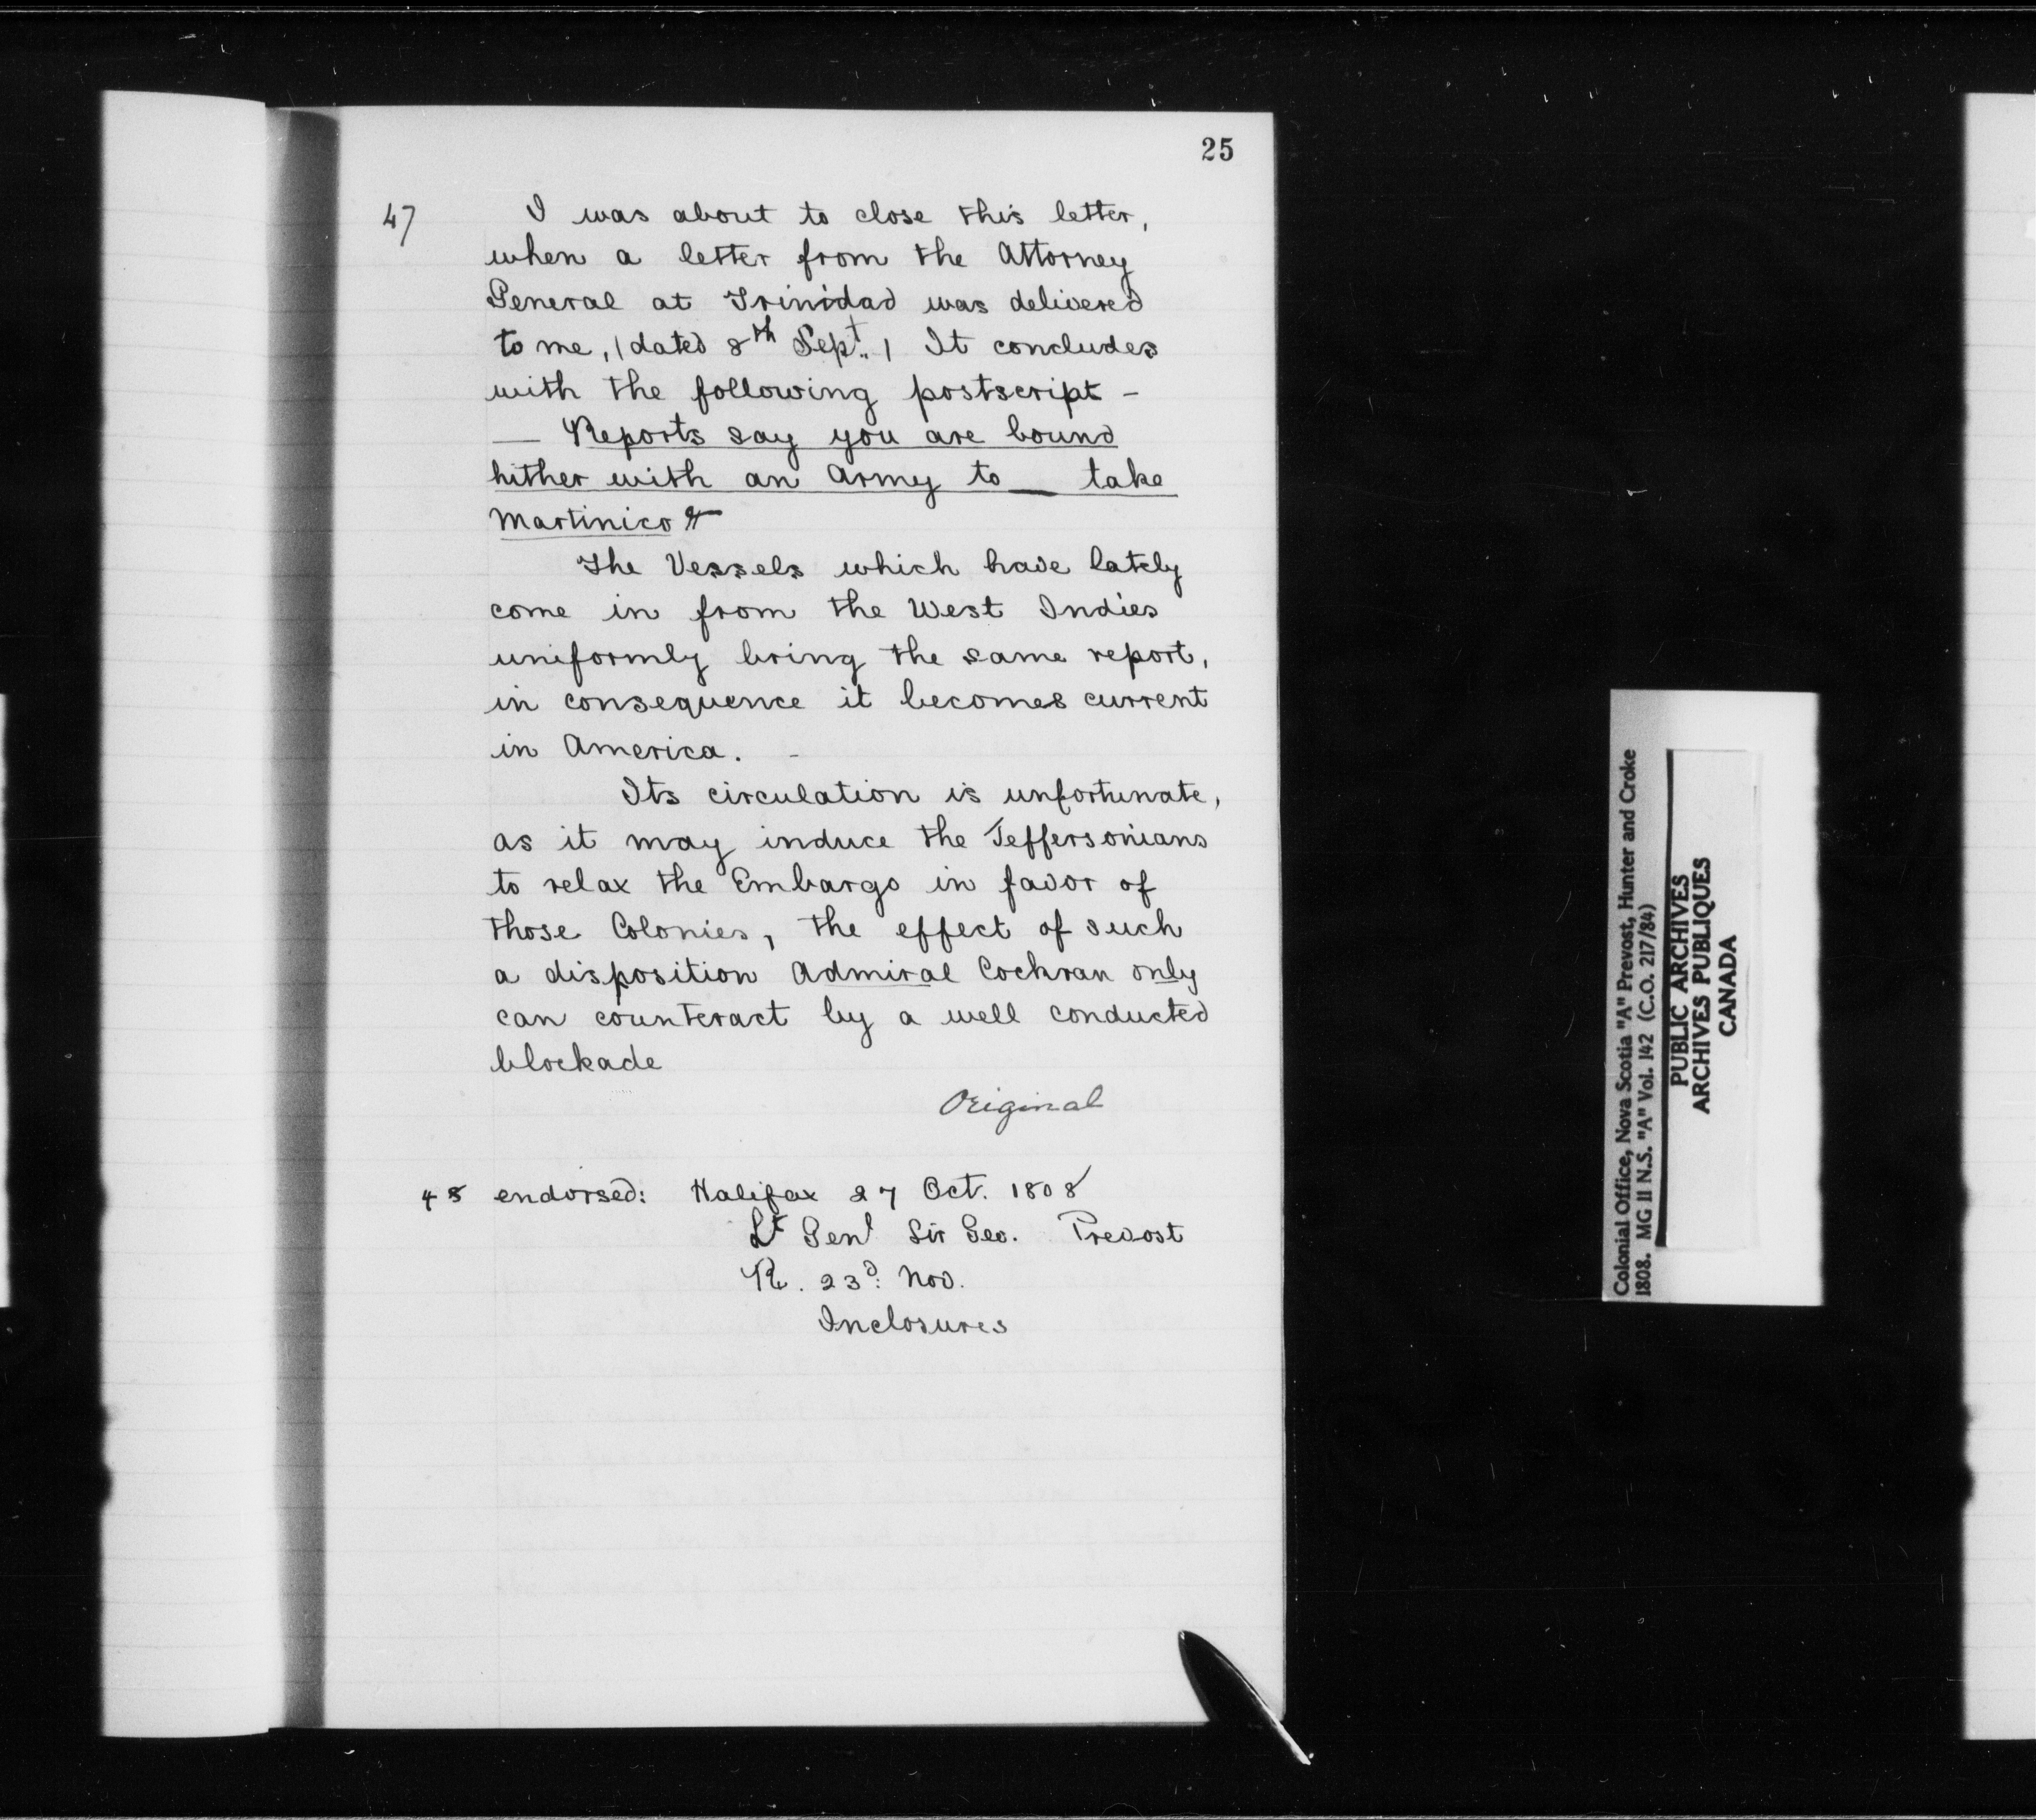 25
47 I was about to close this letter,
when a letter from the Attorney
General at Trinidad was delivered
to me, (dated 8th Sept. ) It concludes
with the following postscript -
— Reports say you are bound
hither with an Army to — take
Martinico
The Vessels which have lately
come in from the West Indies
uniformly bring the same report,
in consequence it becomes current
in America. -
Its circulation is unfortunate,
as it may induce the Jeffersonians
to relax the Embargo in favor of
those Colonies, the effect of such
a disposition Admiral Cochran only
can counteract by a well conducted
blockade
Original
48 endorsed: Halifax 27 Oct. 1808
Lt Genl Sir Geo. Prevost
R. 23d: Nov.
Inclosures
Colonial Office, Nova Scotia "A" Prevost, Hunter and Croke
1808. MG 11 N.S. "A" Vol. 142 (C.O. 217/84)
PUBLIC ARCHIVES
ARCHIVES PUBLIQUES
CANADA